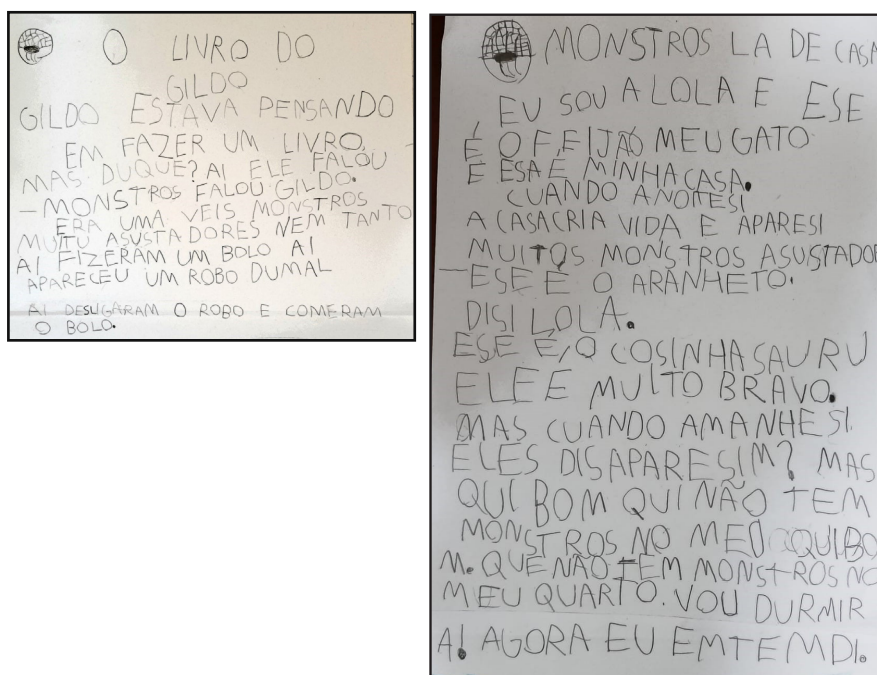 O LIVRO DO
GILDO
GILDO ESTAVA PENSANDO
EM FAZER UM LIVRO.
MAS DUQUE? AI ELE FALOU
— MONSTROS FALOU GILDO.
ERA UMA VEIS MONSTROS
MUITU ASUSTADORES NEM TANTO
AI FIZERAM UM BOLO AI
APARECEU UM ROBO DUMAL
AI DESLIGARAM O ROBO E COMERAM
O BOLO.
MONSTROS LA DE CASA
EU SOU A LOLA E ESE
É O FEIJÃO MEU GATO
E ESA E MINHA CASA.
CUANDO ANOITESI
A CASA CRIA VIDA E APARESI
MUITOS MONSTROS ASUSTADOR
— ESE É O ARANHETO.
DISI LOLA.
ESE É O COSINHASAURU
ELE E MUITO BRAVO.
MAS CUANDO AMANHESI.
ELES DISAPARESIM? MAS
QUI BOM QUI NÃO TEM
MONSTROS NO MEU QUIBO
M. QUE NÃO TEM MONSTROS NO
MEU QUARTO. VOU DURMIR
AI AGORA EU EMTEMDI.